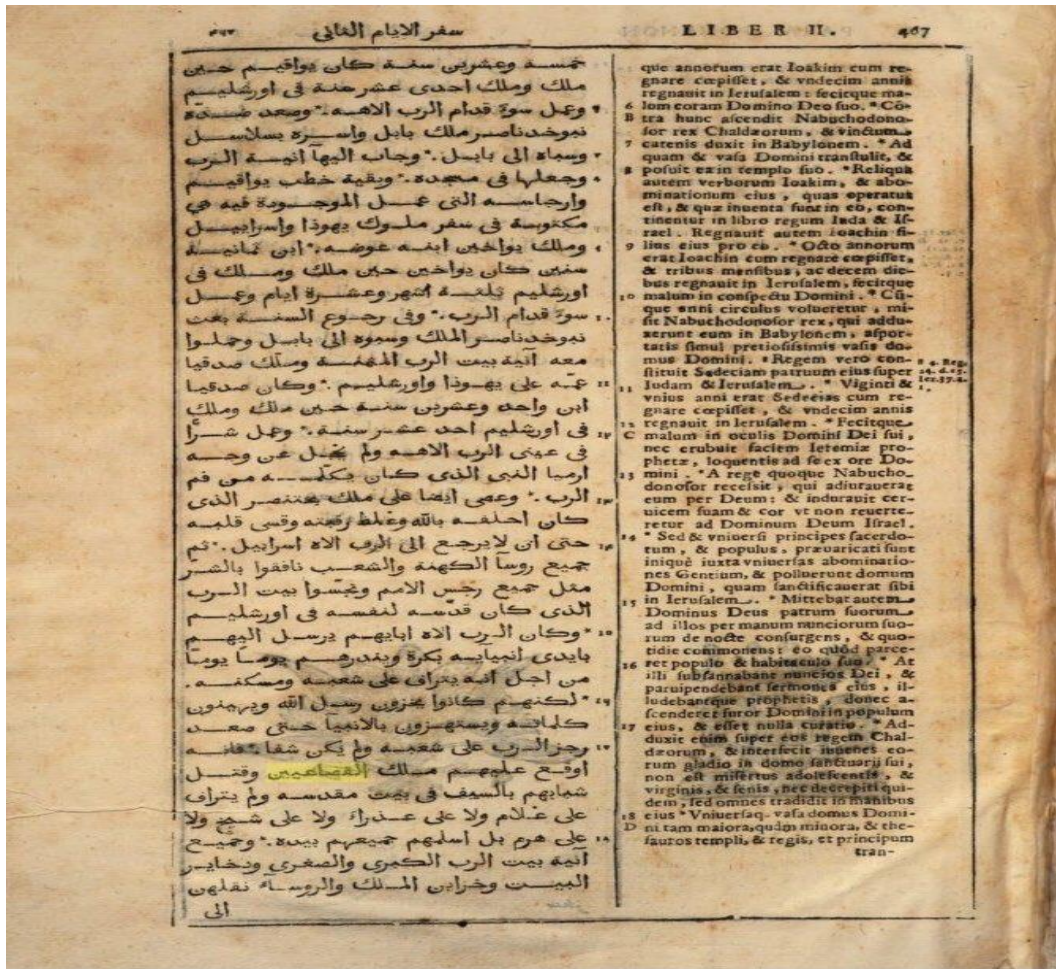 سفر الايام الثاني
LIBER II. 467
خمسه وعشرين سنة كان يواقيم حين
ملك وملك احدى عشر سنة في اورشليم
وعمل سوءً قدام الرب الاهه ۞ وصعد ضده
نبوخدناصر ملك بابل واسره بسلاسل
وسباه الى بابل ۞ وجاب اليها انية الرب
وجعلها في مسجده ۞ وبقية خطب يواقيم
وارجاسه التي عمل الموجودة فيه هي
مكتوبة في سفر ملوك يهوذا واسراييل
وملك يواخين ابنه عوضه ۞ ابن ثمانية
سنين كان يواخين حين ملك وملك في
اورشليم ثلثة اشهر وعشرة ايام وعمل
سوءً قدام الرب ۞ وفي رجوع السنة بعث
نبوخدناصر الملك وسبوه الى بابل وحملوا
معه آنية بيت الرب المثمنة وملك صدقيا
عمّه على يهوذا واورشليم ۞ وكان صدقيا
ابن واحد وعشرين سنة حين ملك وملك
في اورشليم احد عشر سنة ۞ وعمل شراً
في عيني الرب الاهه ولم يخجل عن وجه
ارميا النبي الذي كان يكلمه من فم
الرب ۞ وعصى ايضا على ملك بختنصر الذي
كان احلفه بالله وغلظ رقبته وقسى قلبه
حتى ان لا يرجع الى الرب الاه اسراييل ۞ ثم
جميع روسآ الكهنة والشعب نافقوا بالشر
مثل جميع رجس الامم ونجسوا بيت الرب
الذي كان قدسه لنفسه في اورشليم
۞ وكان الرب الاه ابايهم يرسل اليهم
بايدى انبيايه بكرة وينذرهم يوماً يوماً
من اجل انه يتراف على شعبه ومسكنه.
۞ لكنهم كانوا يخزون رسل الله ويهينون
كلماته ويستهزون بالانبيا حتى صعد
رجز الرب على شعبه ولم يكن شفا ۞ فانه
اوقع عليهم ملك القضاعيين وقتل
شبابهم بالسيف في بيت مقدسه ولم يتراف
على غلام ولا على عذراء ولا على شيخ ولا
على هرم بل اسلمهم جميعهم بيده ۞ وجميع
آنية بيت الرب الكبرى والصغرى وذخاير
البيت وخزاين الملك والروسآء نقلهن
الى
que annorum erat Ioakim cum re-
gnare cœpisset, & vndecim annis
regnauit in Ierusalem: fecitque ma-
6 lum coram Domino Deo suo. * Cō-
B tra hunc ascendit Nabuchodono-
sor rex Chaldæorum, & vinctum
7 catenis duxit in Babylonem. * Ad
quam & vasa Domini transtulit, &
8 posuit ea in templo suo. * Reliqua
autem verborum Ioakim, & abo-
minationum eius, quas operatus
est, & quæ inuenta sunt in eo, con-
tinentur in libro regum Iuda & Is-
rael. Regnauit autem Ioachin fi-
9 lius eius pro eo. * Octo annorum
erat Ioachin cum regnare cœpisset,
& tribus mensibus, ac decem die-
bus regnauit in Ierusalem, fecitque
10 malum in conspectu Domini. * Cū-
que anni circulus volueretur, mi-
sit Nabuchodonosor rex, qui addu-
xerunt eum in Babylonem, aspor-
tatis simul pretiosissimis vasis do-
mus Domini. * Regem vero con-
stituit Sedeciam patruum eius super
11 Iudam & Ierusalem. * Viginti &
vnius anni erat Sedecias cum re-
gnare cœpisset, & vndecim annis
12 regnauit in Ierusalem. * Fecitque
C malum in oculis Domini Dei sui,
nec erubuit faciem Ieremiæ pro-
phetæ, loquentis ad se ex ore Do-
13 mini. * A rege quoque Nabucho-
donosor recessit, qui adiurauerat
eum per Deum: & indurauit cer-
uicem suam & cor vt non reuerte-
retur ad Dominum Deum Israel.
14 * Sed & vniuersi principes sacerdo-
tum, & populus, præuaricati sunt
iniquè iuxta vniuersas abominatio-
nes Gentium, & polluerunt domum
Domini, quam sanctificauerat sibi
15 in Ierusalem. * Mittebat autem
Dominus Deus patrum suorum
ad illos per manum nunciorum suo-
rum de nocte consurgens, & quo-
tidie commonens: eo quòd parce-
16 ret populo & habitaculo suo. * At
illi subsannabant nuncios Dei, &
paruipendebant sermones eius, il-
ludebantque prophetis, donec a-
scenderet furor Domini in populum
17 eius, & esset nulla curatio. * Ad-
duxit enim super eos regem Chal-
dæorum, & interfecit iuuenes eo-
rum gladio in domo sanctuarij sui,
non est misertus adolescentis, &
virginis, & senis, nec decrepiti qui-
dem, sed omnes tradidit in manibus
18 eius * Vniuersaq. vasa domus Domi-
D ni tam maiora, quàm minora, & the-
sauros templi, & regis, et principum
tran-